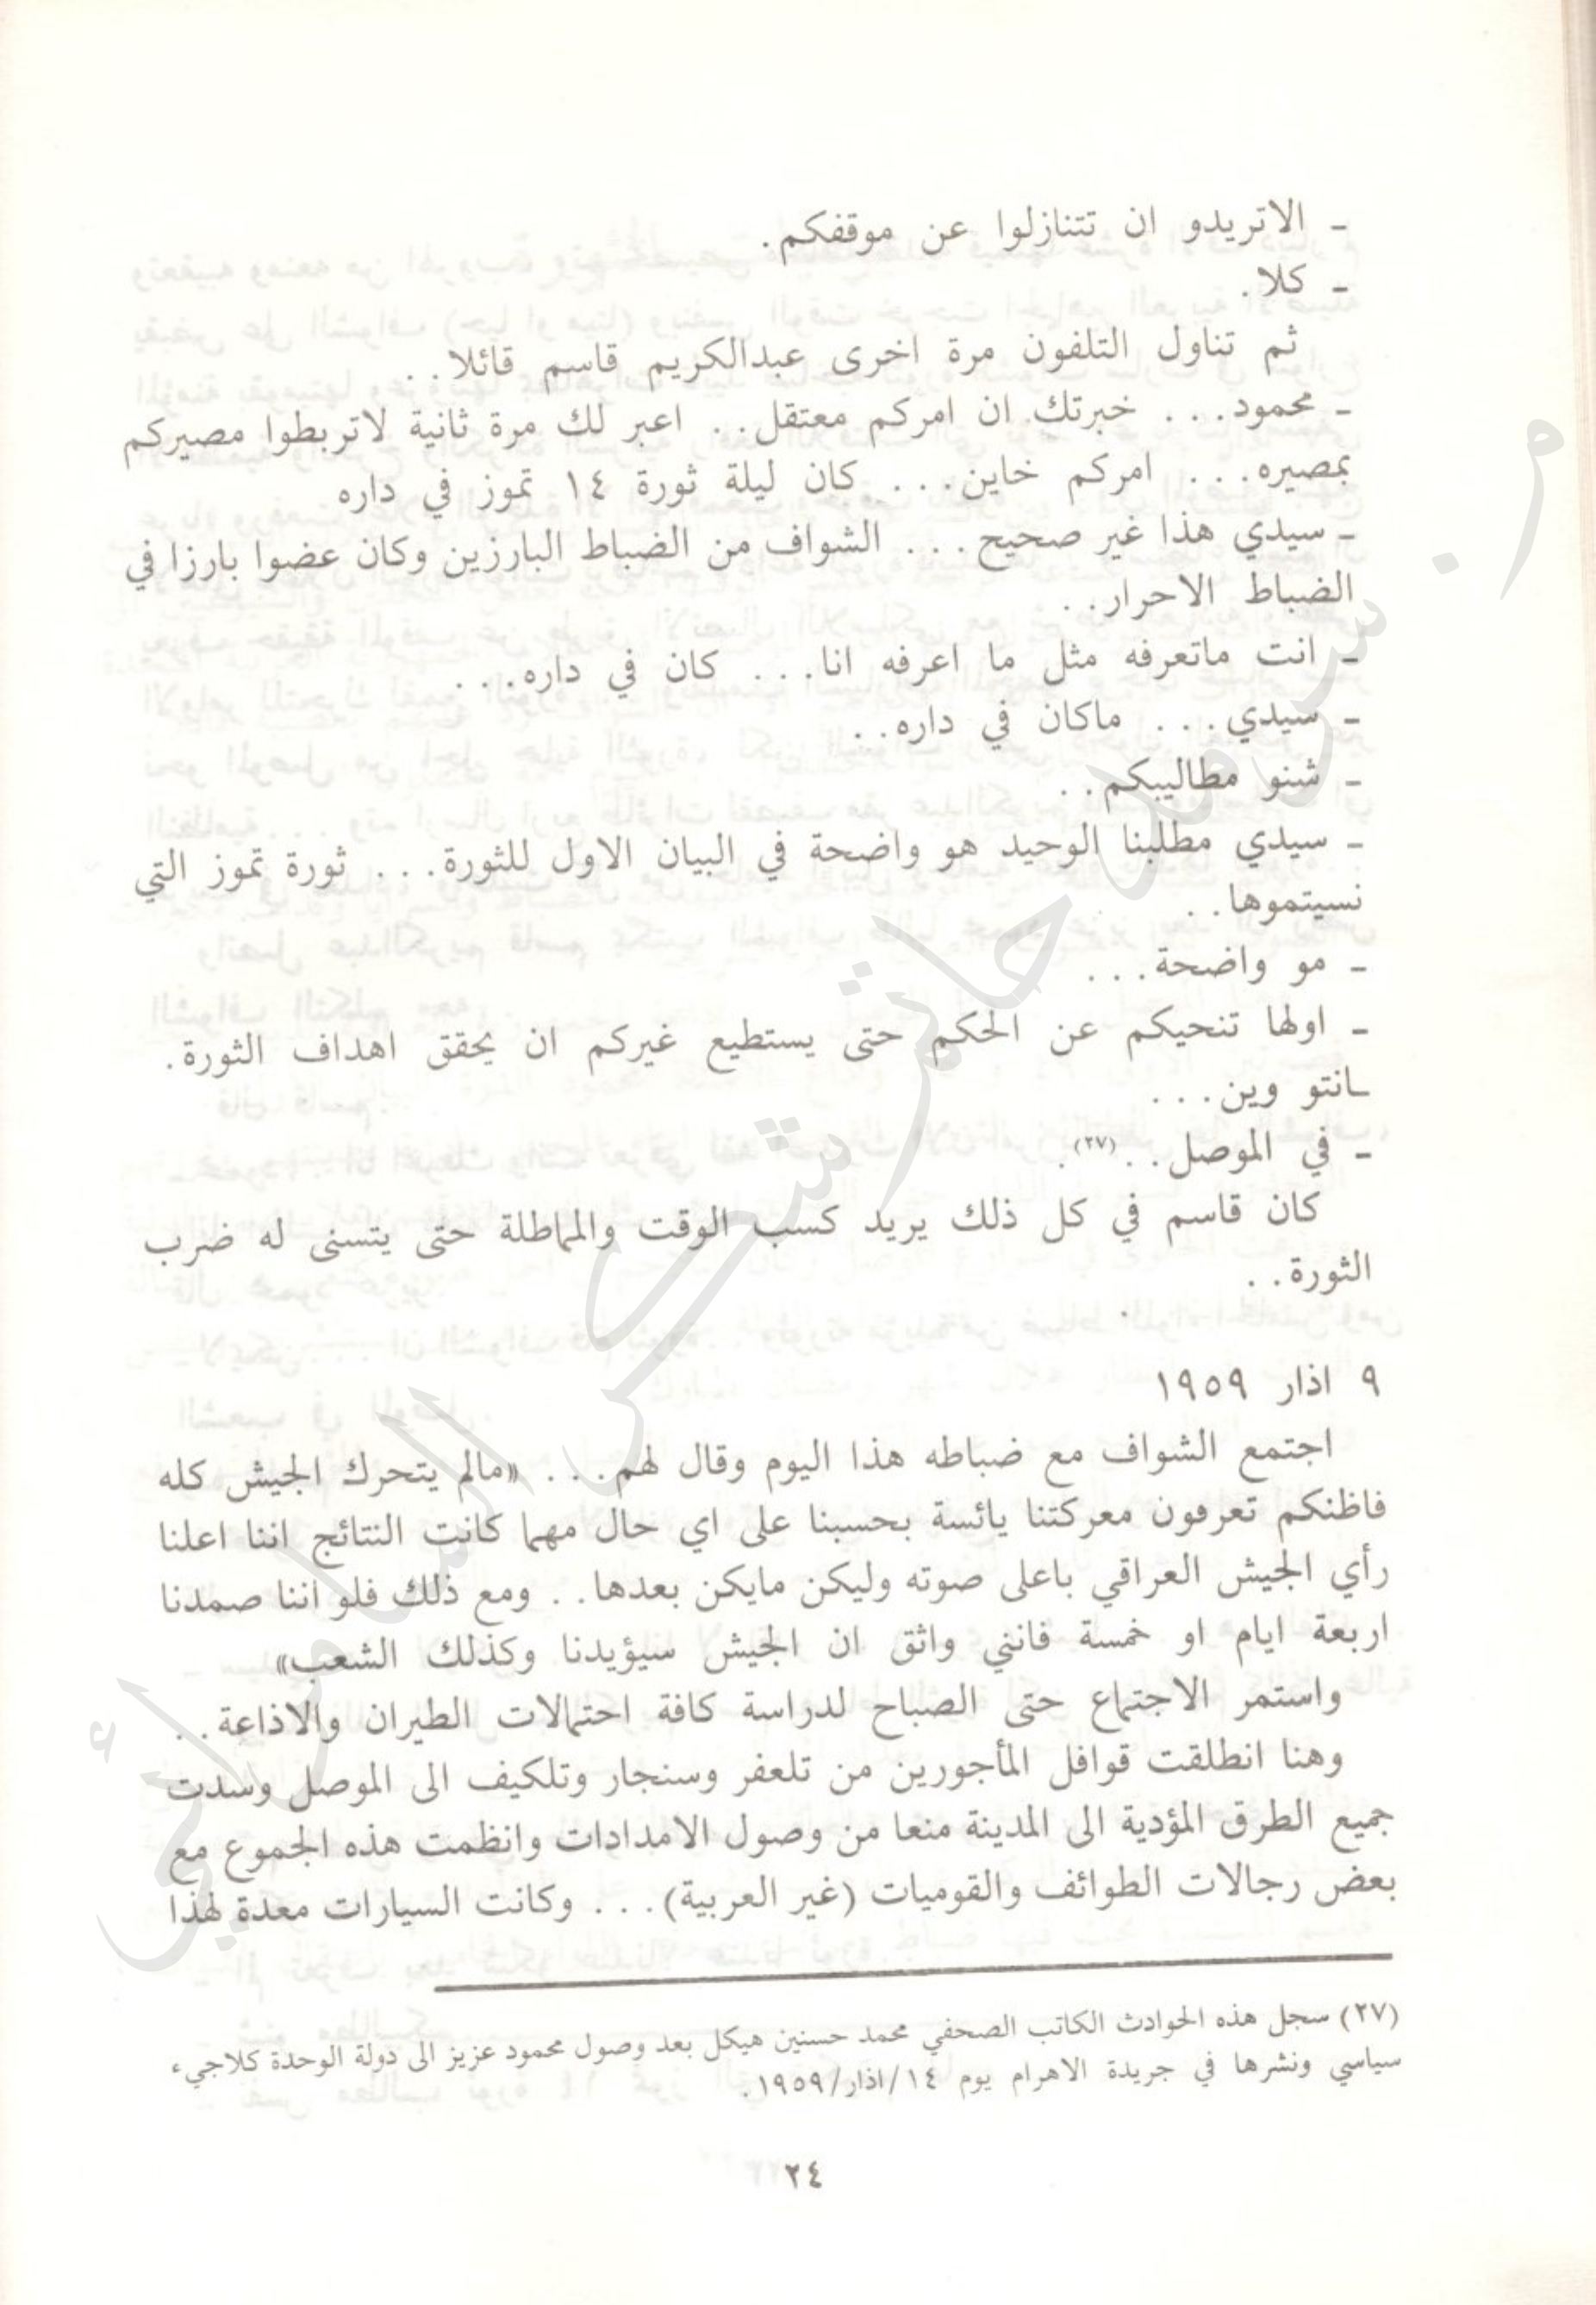 ـ الاتريدو ان تتنازلوا عن موقفكم.
ـ كلا.
ثم تناول التلفون مرة اخرى عبدالكريم قاسم قائلا..
ـ محمود... خبرتك ان امركم معتقل.. اعبر لك مرة ثانية لاتربطوا مصيركم
بمصيره... امركم خاين... كان ليلة ثورة ١٤ تموز في داره
ـ سيدي هذا غير صحيح... الشواف من الضباط البارزين وكان عضوا بارزا في
الضباط الاحرار..
ـ انت ماتعرفه مثل ما اعرفه انا... كان في داره...
ـ سيدي... ماكان في داره..
ـ شنو مطاليبكم..
ـ سيدي مطلبنا الوحيد هو واضحة في البيان الاول للثورة... ثورة تموز التي
نسيتموها..
ـ مو واضحة...
ـ اولها تنحيكم عن الحكم حتى يستطيع غيركم ان يحقق اهداف الثورة.
ـانتو وين...
ـ في الموصل..(٢٧).
كان قاسم في كل ذلك يريد كسب الوقت والمماطلة حتى يتسنى له ضرب
الثورة..
٩ اذار ١٩٥٩
اجتمع الشواف مع ضباطه هذا اليوم وقال لهم... «مالم يتحرك الجيش كله
فاظنكم تعرفون معركتنا يائسة بحسبنا على اي حال مهما كانت النتائج اننا اعلنا
رأي الجيش العراقي باعلى صوته وليكن مايكن بعدها.. ومع ذلك فلو اننا صمدنا
اربعة ايام او خمسة فانني واثق ان الجيش سيؤيدنا وكذلك الشعب»
واستمر الاجتماع حتى الصباح لدراسة كافة احتمالات الطيران والاذاعة..
وهنا انطلقت قوافل المأجورين من تلعفر وسنجار وتلكيف الى الموصل وسدت
جميع الطرق المؤدية الى المدينة منعا من وصول الامدادات وانظمت هذه الجموع مع
بعض رجالات الطوائف والقوميات (غير العربية)... وكانت السيارات معدة لهذا
(٢٧) سجل هذه الحوادث الكاتب الصحفي محمد حسنين هيكل بعد وصول محمود عزيز الى دولة الوحدة كلاجيء
سياسي ونشرها في جريدة الاهرام يوم ١٤/اذار/١٩٥٩.
٢٤